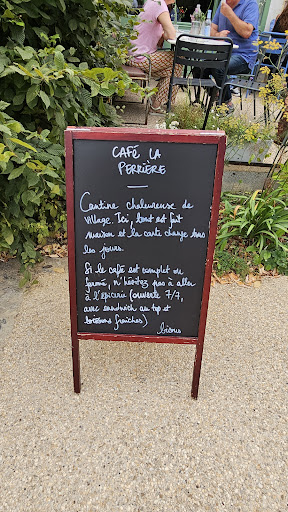 CAFÉ LA
PERRIÈRE
Cantine chaleureuse de
village. Ici, tout est fait
maison et la carte change tous
les jours.
Si le café est complet ou
fermé, n'hésitez pas à aller
à l'épicerie (ouverte 7/7,
avec sandwich au top et
boissons fraîches)
bisous